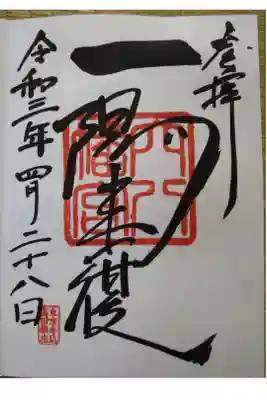 奉拝
一陽来復
令和三年四月二十八日